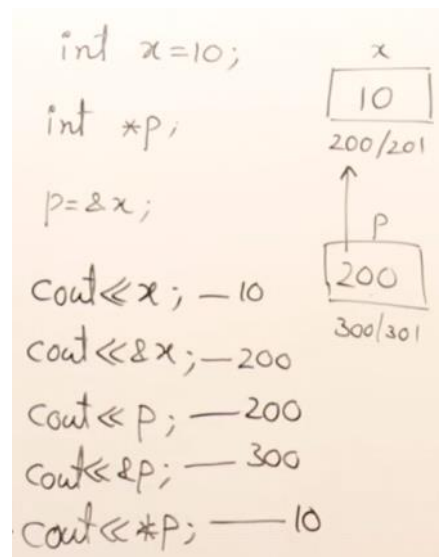 int x=10;
int *p;
p=&x;
cout<<x; — 10
cout<<&x; — 200
cout<<p; — 200
cout<<&p; — 300
cout<<*p; — 10
x
10
200/201
p
200
300/301